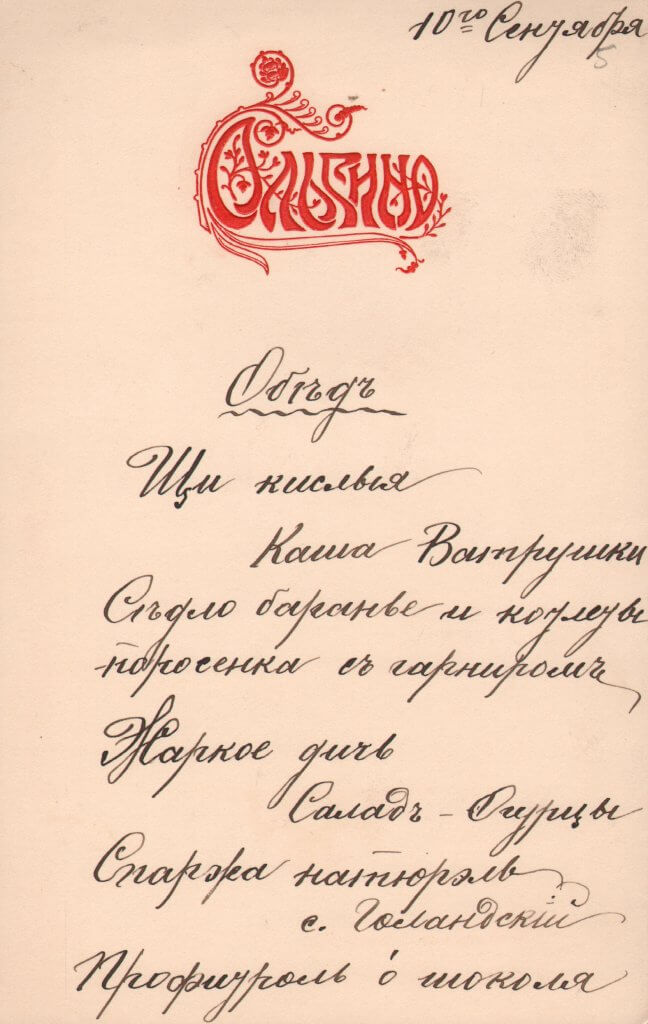 10го Сентября
5
Ольгино
Обѣдъ
Щи кислыя
Каша Ватрушки
Сѣдло баранье и котлеты
поросенка съ гарниромъ
Жаркое дичь
Саладъ - Огурцы
Спаржа натюрэль
с. Голандскій
Профитроль о шоколя